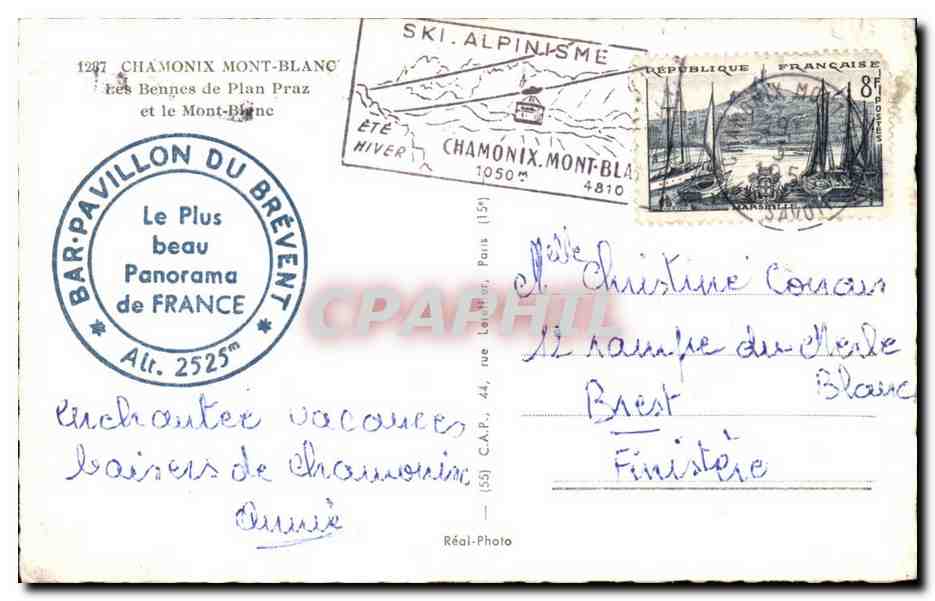 1287 CHAMONIX MONT-BLANC
Les Bennes de Plan Praz
et le Mont-Blanc
SKI. ALPINISME
ÉTÉ
HIVER
CHAMONIX. MONT-BLA
1050m 4810
RÉPUBLIQUE FRANÇAISE
8F
POSTES
MARSEILLE
BAR-PAVILLON DU BRÉVENT
Le Plus
beau
Panorama
de FRANCE
* Alt. 2525m *
enchantée vacances
baisers de Chamonix
Annie
(55) C.A.P., 44, rue Letellier, Paris (15e)
Réal-Photo
CPAPHIL
Melle Christine
12 rampe du Merle
Blanc
Brest
Finistère